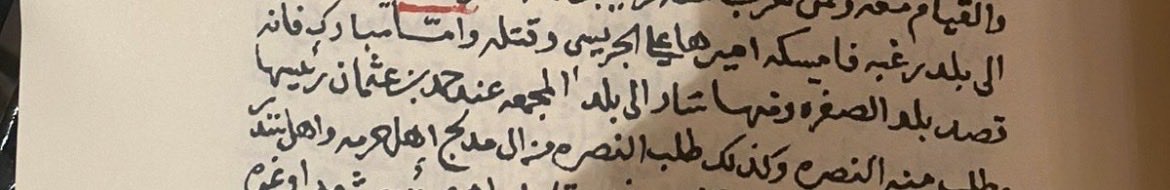 والقيام معه ومن هرب
الى بلد رغبه فامسكه اميرها علي الجريسي وقتله واما مبارك فانه
قصد بلد الصفره ومنها سار الى بلد المجمعه عند حمد بن عثمان رئيسها
وطلب منه النصره وكذلك طلب النصره من ال مدلج اهل حرمه واهل